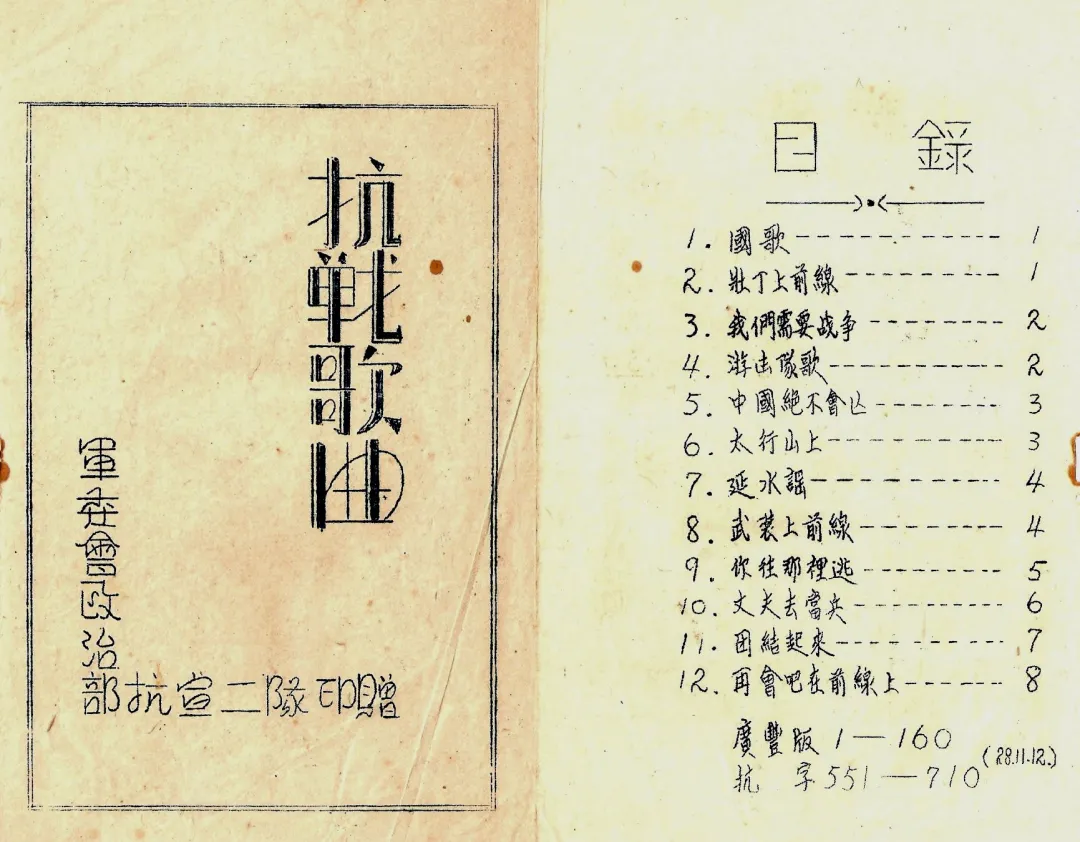 抗戦歌曲
軍委會政治
部抗宣二隊印贈
目錄
1. 國歌 1
2. 壯丁上前線 1
3. 我們需要战争 2
4. 游击隊歌 2
5. 中國絕不會亡 3
6. 太行山上 3
7. 延水謡 4
8. 武装上前線 4
9. 你往那裡逃 5
10. 丈夫去當兵 6
11. 团結起來 7
12. 再會吧在前線上 8
廣豐版 1—160
抗字 551—710 (28.11.12.)